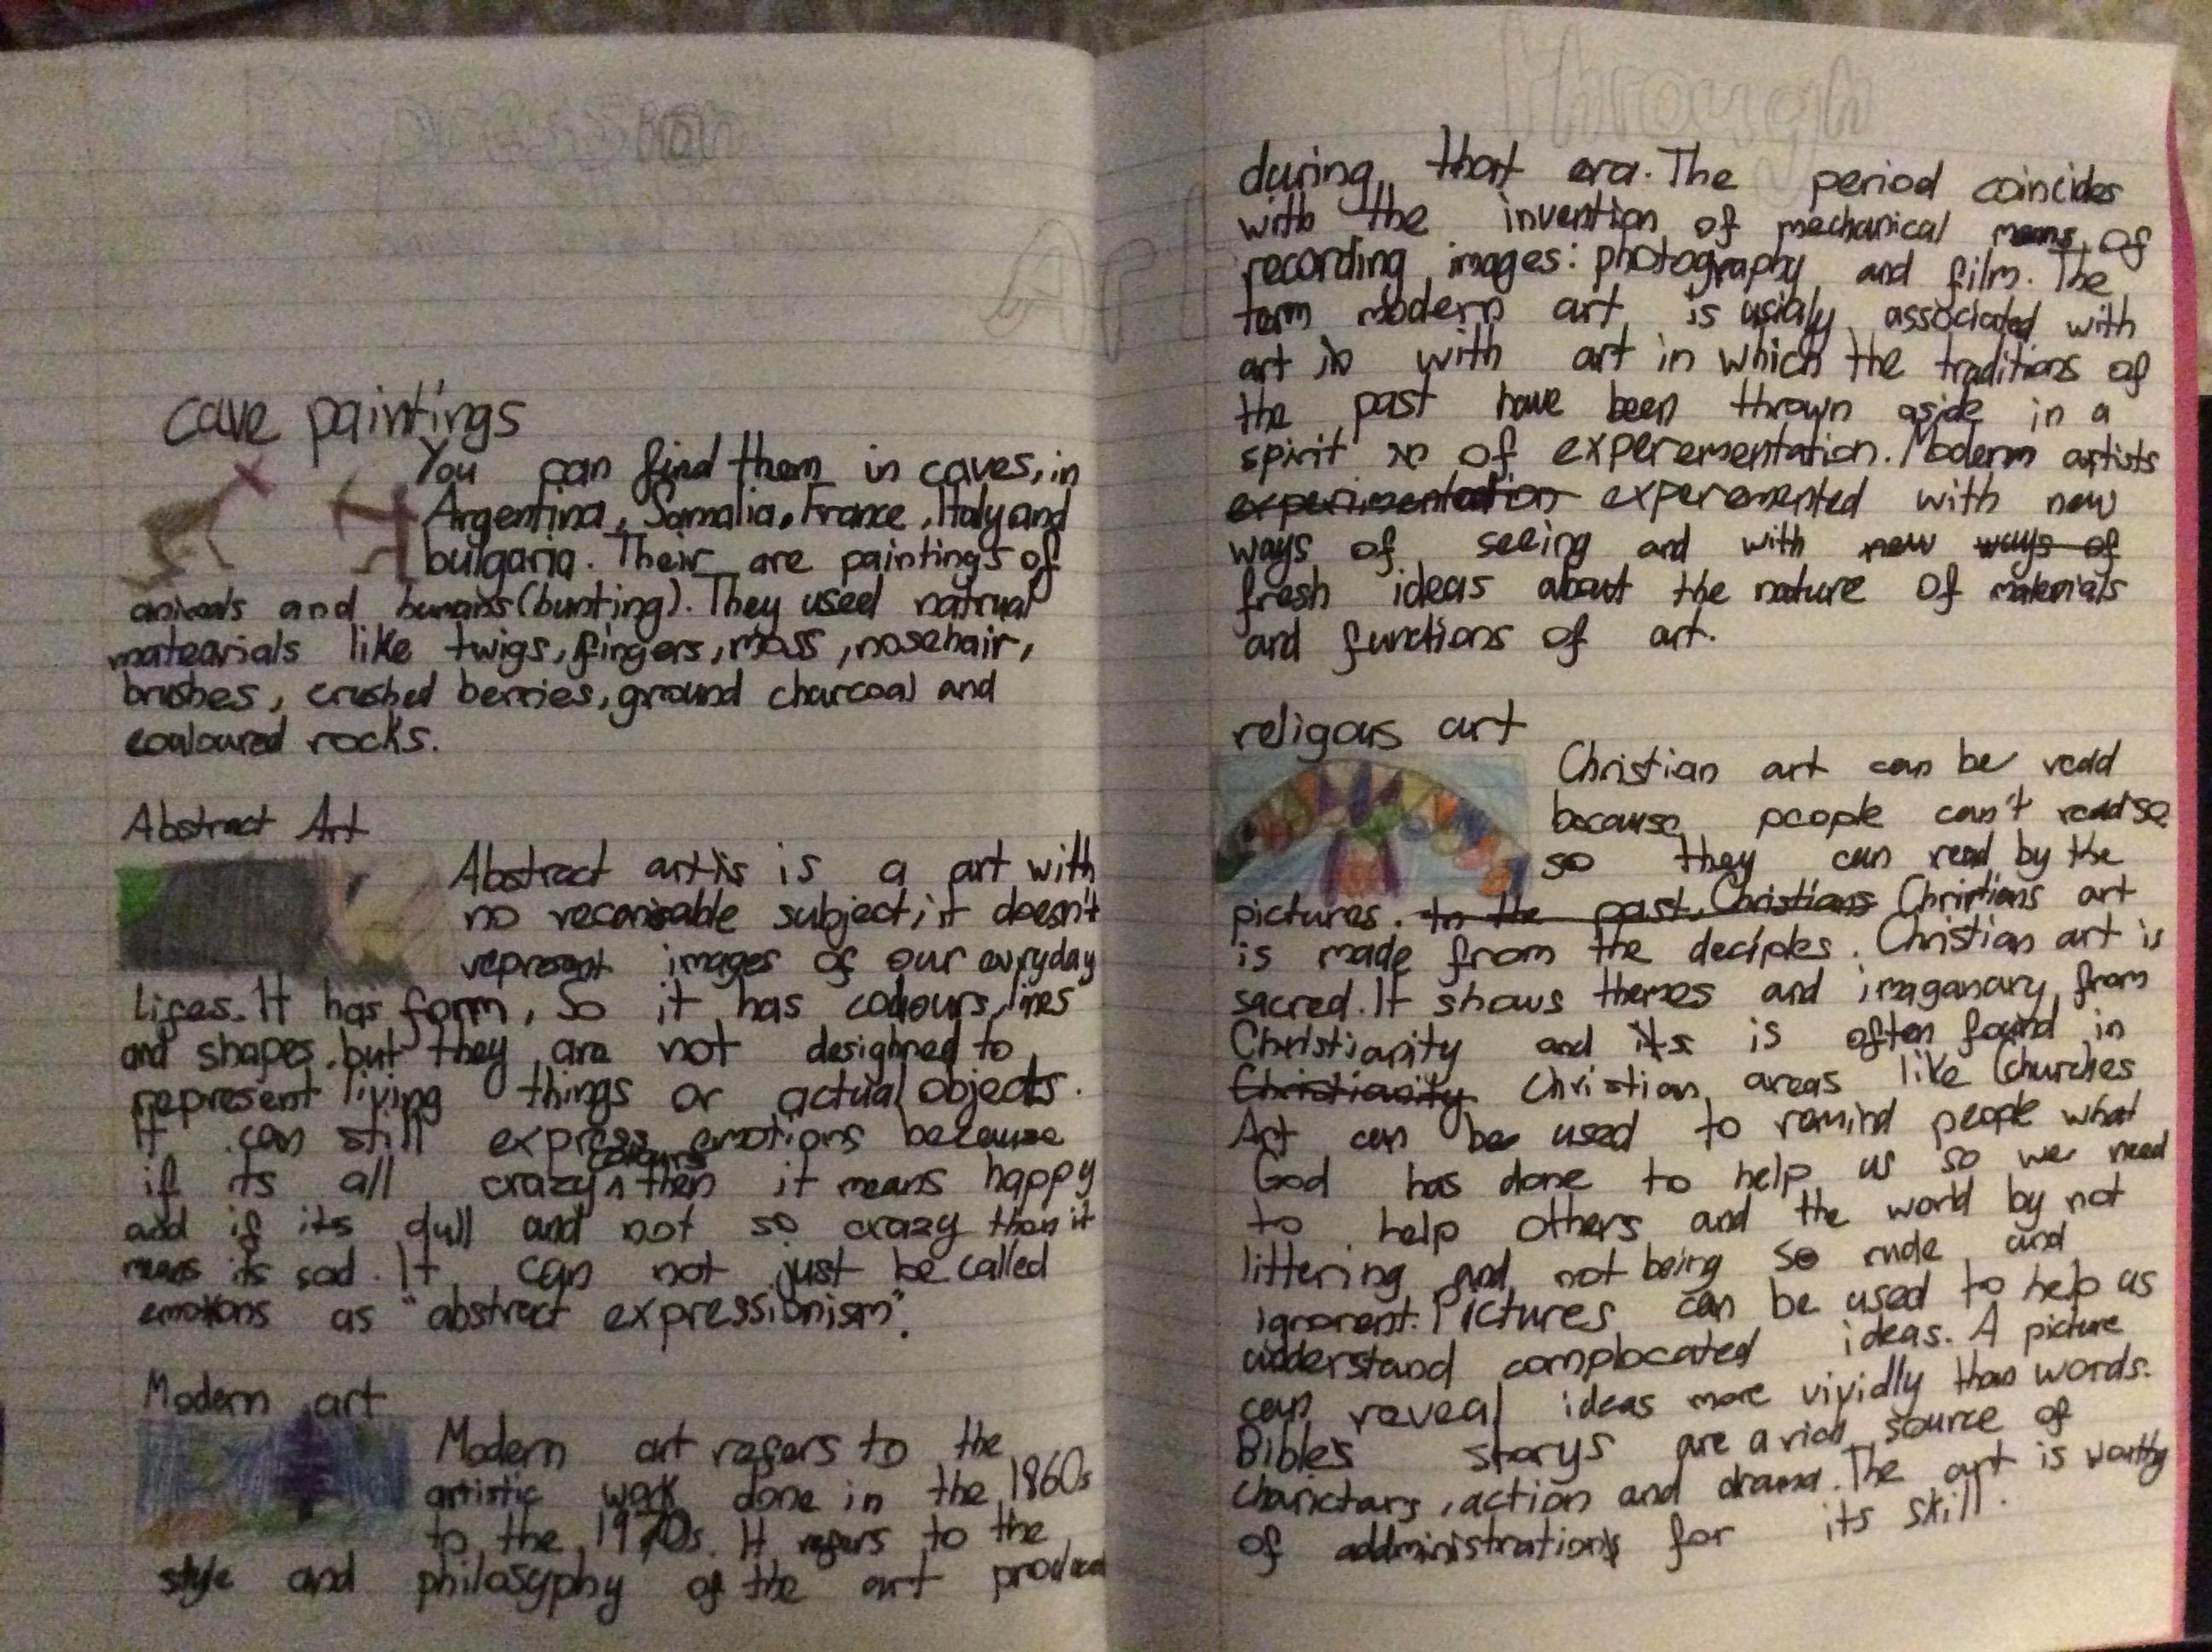 Expression
Art
cave paintings
You can find them in caves, in
Argentina, Somalia, France, Italy and
bulgaria. Their are paintings of
animals and humans (hunting). They used natrual
matearials like twigs, fingers, moss, nosehair,
brushes, crushed berries, ground charcoal and
coaloured rocks.
Abstract Art
Abstract art is is a art with
no reconisable subject, it doesn't
represent images of our evryday
lifes. It has form, So it has colours, lines
and shapes, but they are not desighned to
represent living things or actual objects.
It can still express emotions because
colours
if its all crazy ^ then it means happy
and if its dull and not so crazy then it
means its sad. It can not just be called
emotions as "abstract expressionism".
Modern art
Modern art refers to the
artistic work done in the 1860s
to the 1970s. It refers to the
style and philosyphy of the art produced
Through
during that era. The period coincides
with the invention of mechanical means of
recording images: photography and film. The
term modern art is usialy associated with
art in with art in which the traditions of
the past have been thrown aside in a
spirit of experementation. Modern artists
experimentation experemented with new
ways of seeing and with new ways of
fresh ideas about the nature of materials
and functions of art.
religous art
Christian art can be read
because people can't read so
so they can read by the
pictures. In the past, Christians Christians art
is made from the deciples. Christian art is
sacred. It shows themes and imaganary from
Christianity and its is often found in
Christianity Christian areas like Churches
Art can be used to remind people what
God has done to help us so we need
to help others and the world by not
littering and not being so rude and
ignorent. Pictures can be used to help us
understand complocated ideas. A picture
can reveal ideas more vividly than words.
Bibles storys are a rich source of
charictars, action and drama. The art is worthy
of addministrations for its skill.